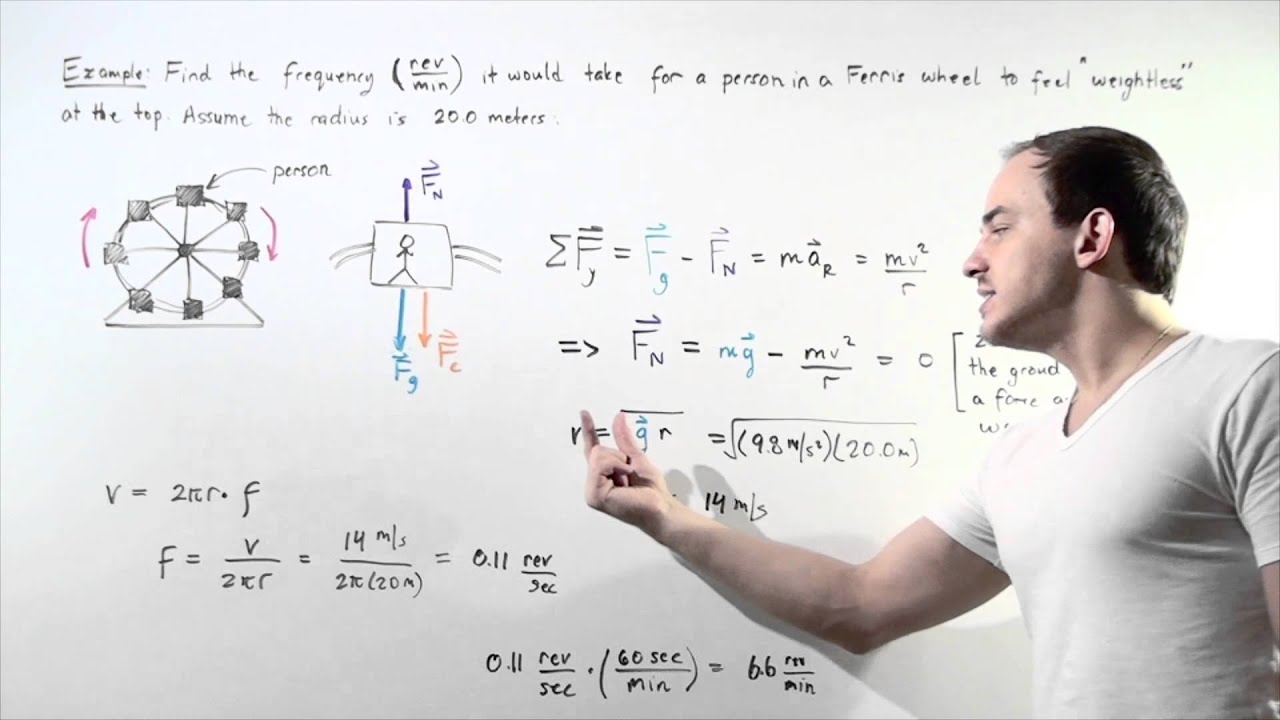 Example: Find the frequency (rev/min) it would take for a person in a Ferris wheel to feel "weightless"
at the top. Assume the radius is 20.0 meters.
person
F⃗_N
F⃗_g
F⃗_c
ΣF⃗_y = F⃗_g - F⃗_N = ma⃗_R = mv²/r
=> F⃗_N = mg⃗ - mv²/r = 0 [
the ground
a force
g⃗ r = √(9.8 m/s²)(20.0 m)
14 m/s
v = 2πr · f
f = v/2πr = 14 m/s/2π(20 m) = 0.11 rev/sec
0.11 rev/sec · (60 sec/min) = 6.6 rev/min